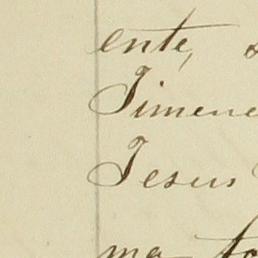 ente,
Jimene
Jesus
ma